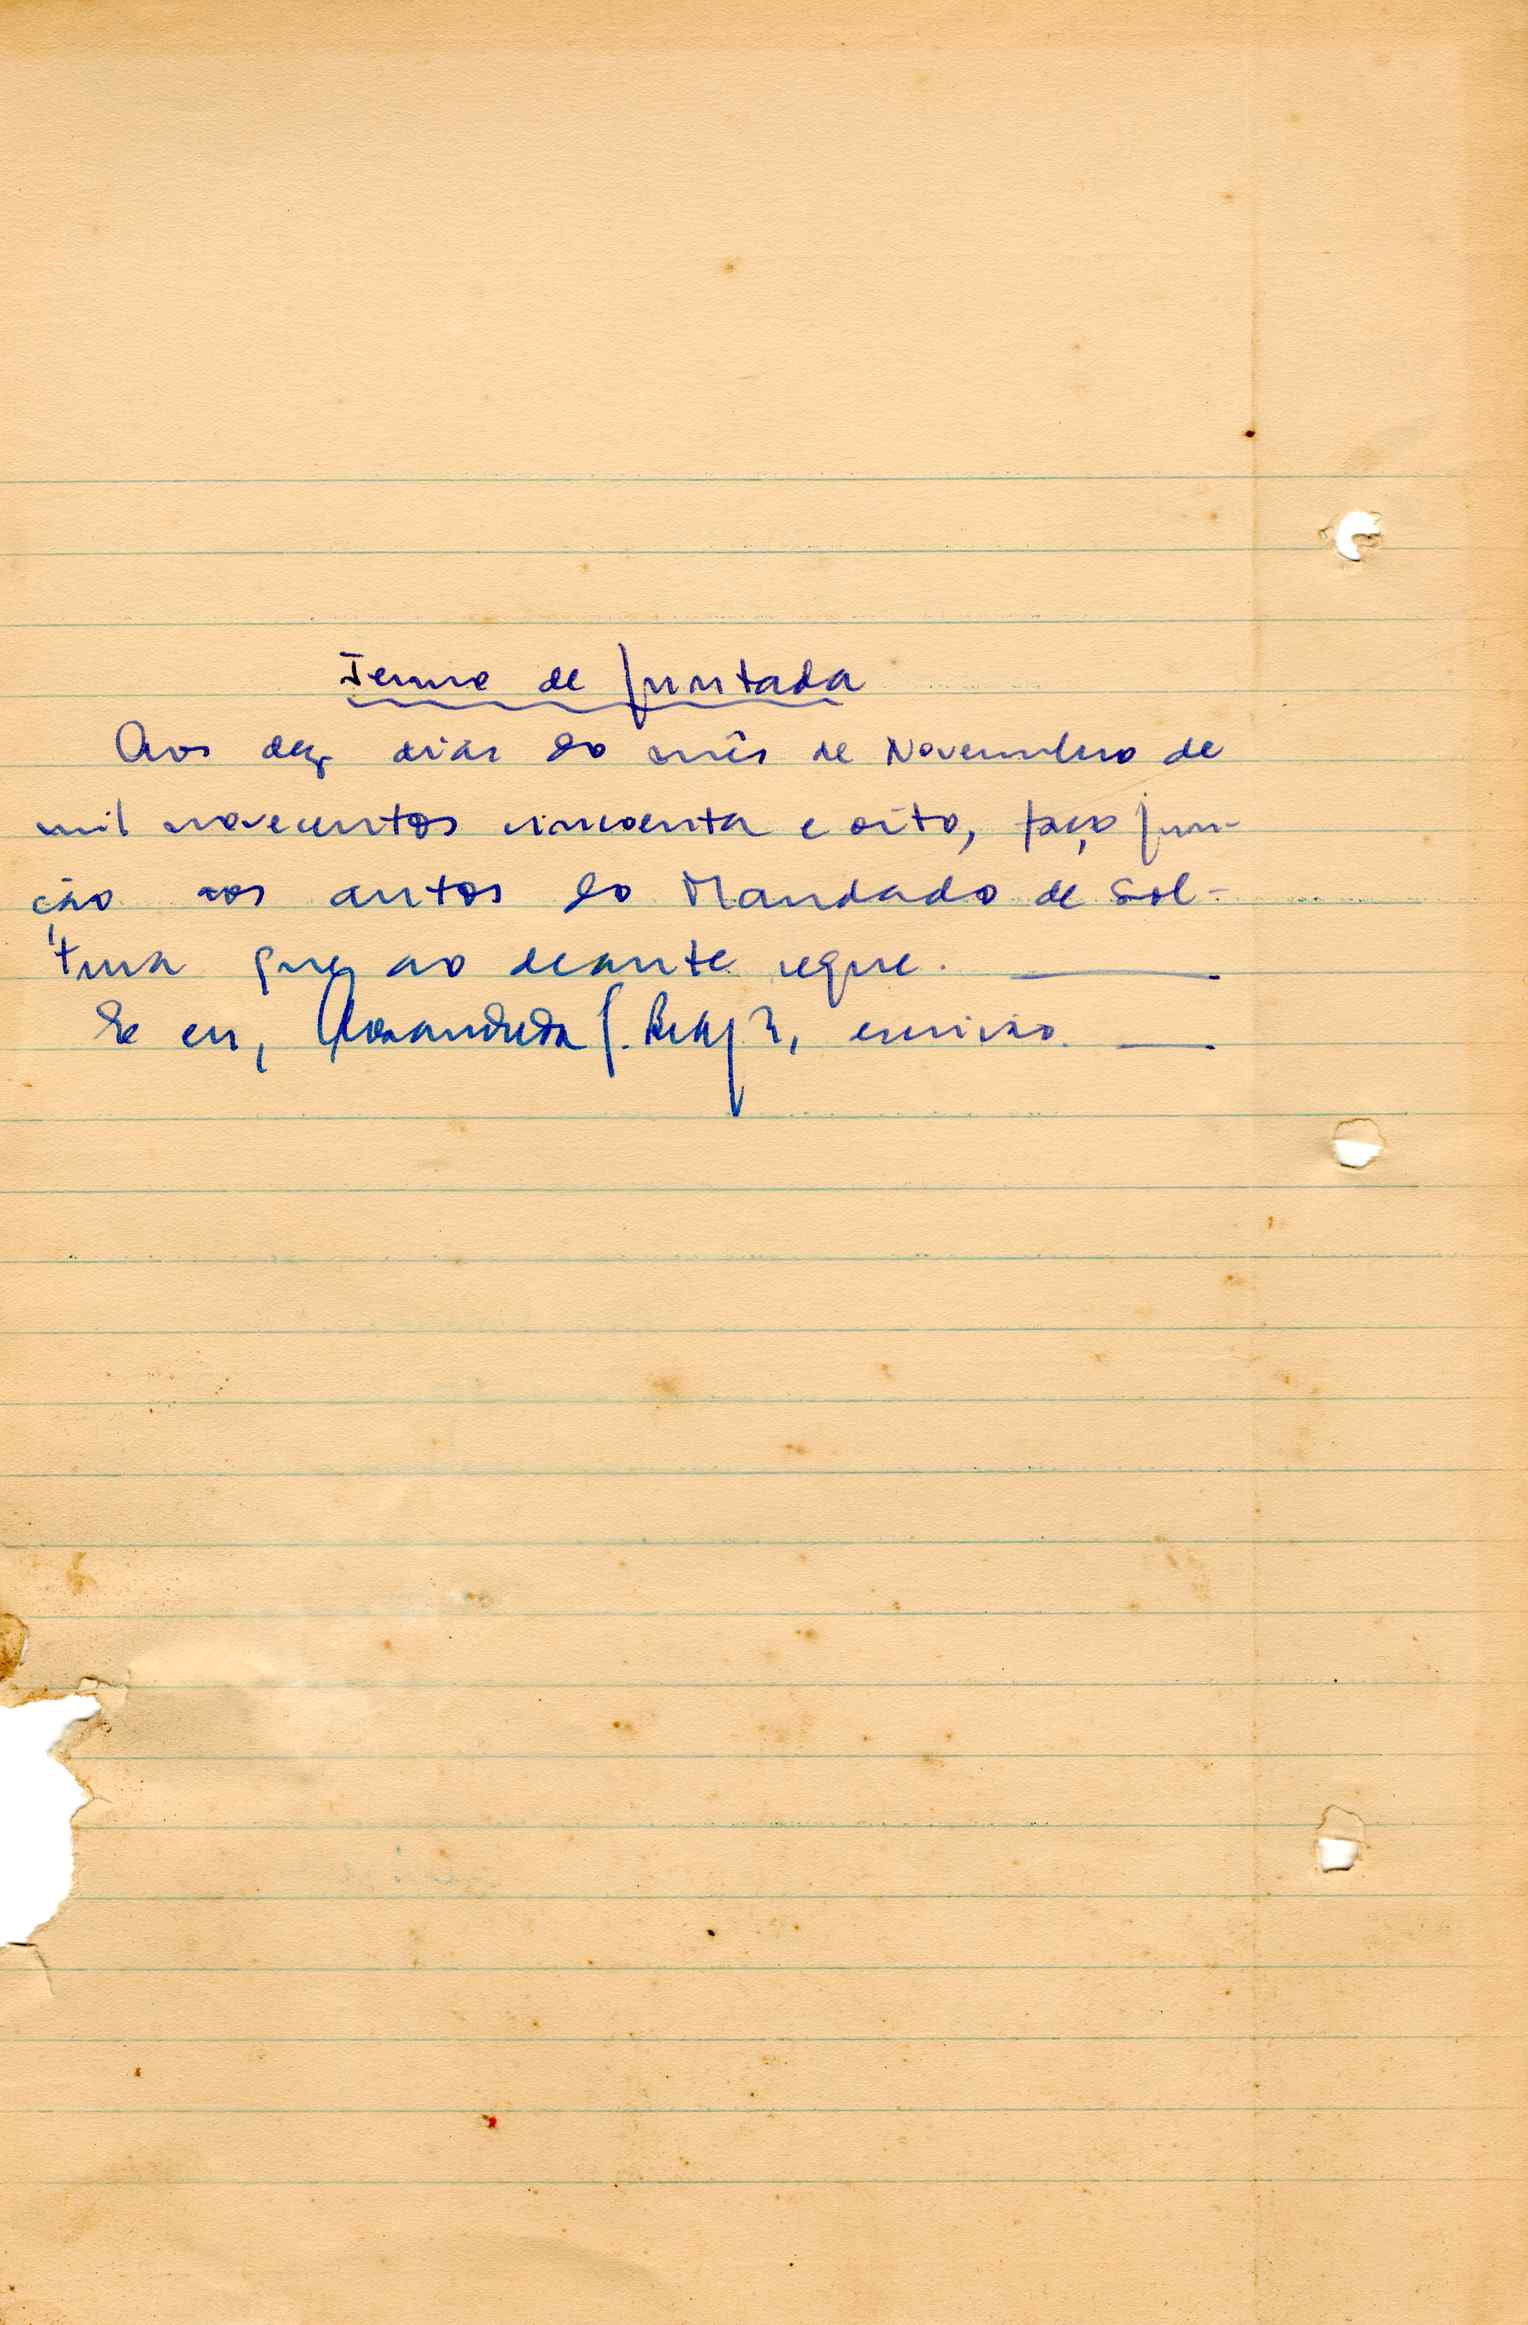 Termo de juntada
Aos dez dias do mês de Novembro de
mil novecentos cincoenta e oito, faço jun-
ção aos autos do Mandado de Sol-
tura que ao deante segue.
E eu, escrivão.